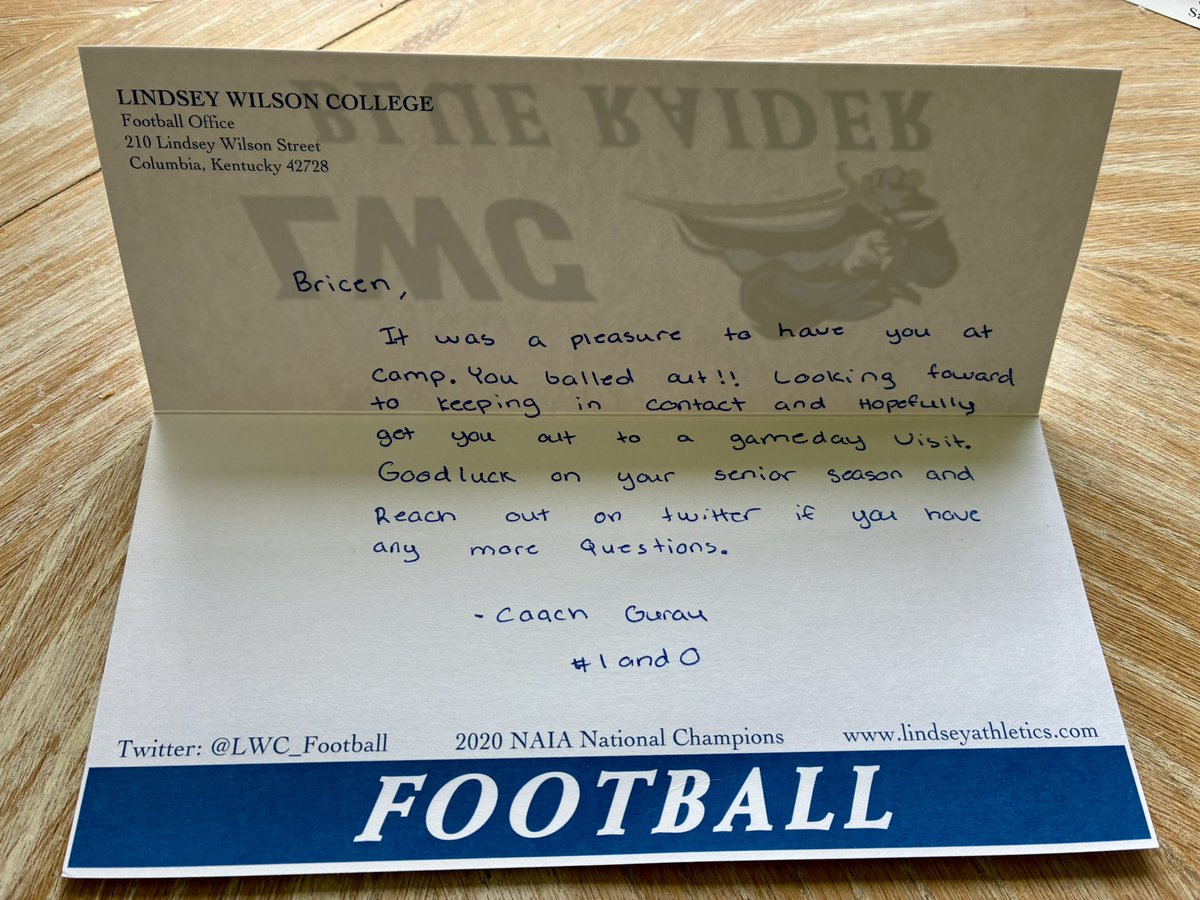 LINDSEY WILSON COLLEGE
Football Office
210 Lindsey Wilson Street
Columbia, Kentucky 42728
BLUE RAIDER
LWC
Bricen,
It was a pleasure to have you at
camp. You balled out!! Looking foward
to keeping in contact and Hopefully
get you out to a gameday visit.
Good luck on your senior season and
Reach out on twitter if you have
any more Questions.
- Coach Gurau
#1and0
Twitter: @LWC_Football
2020 NAIA National Champions
www.lindseyathletics.com
FOOTBALL